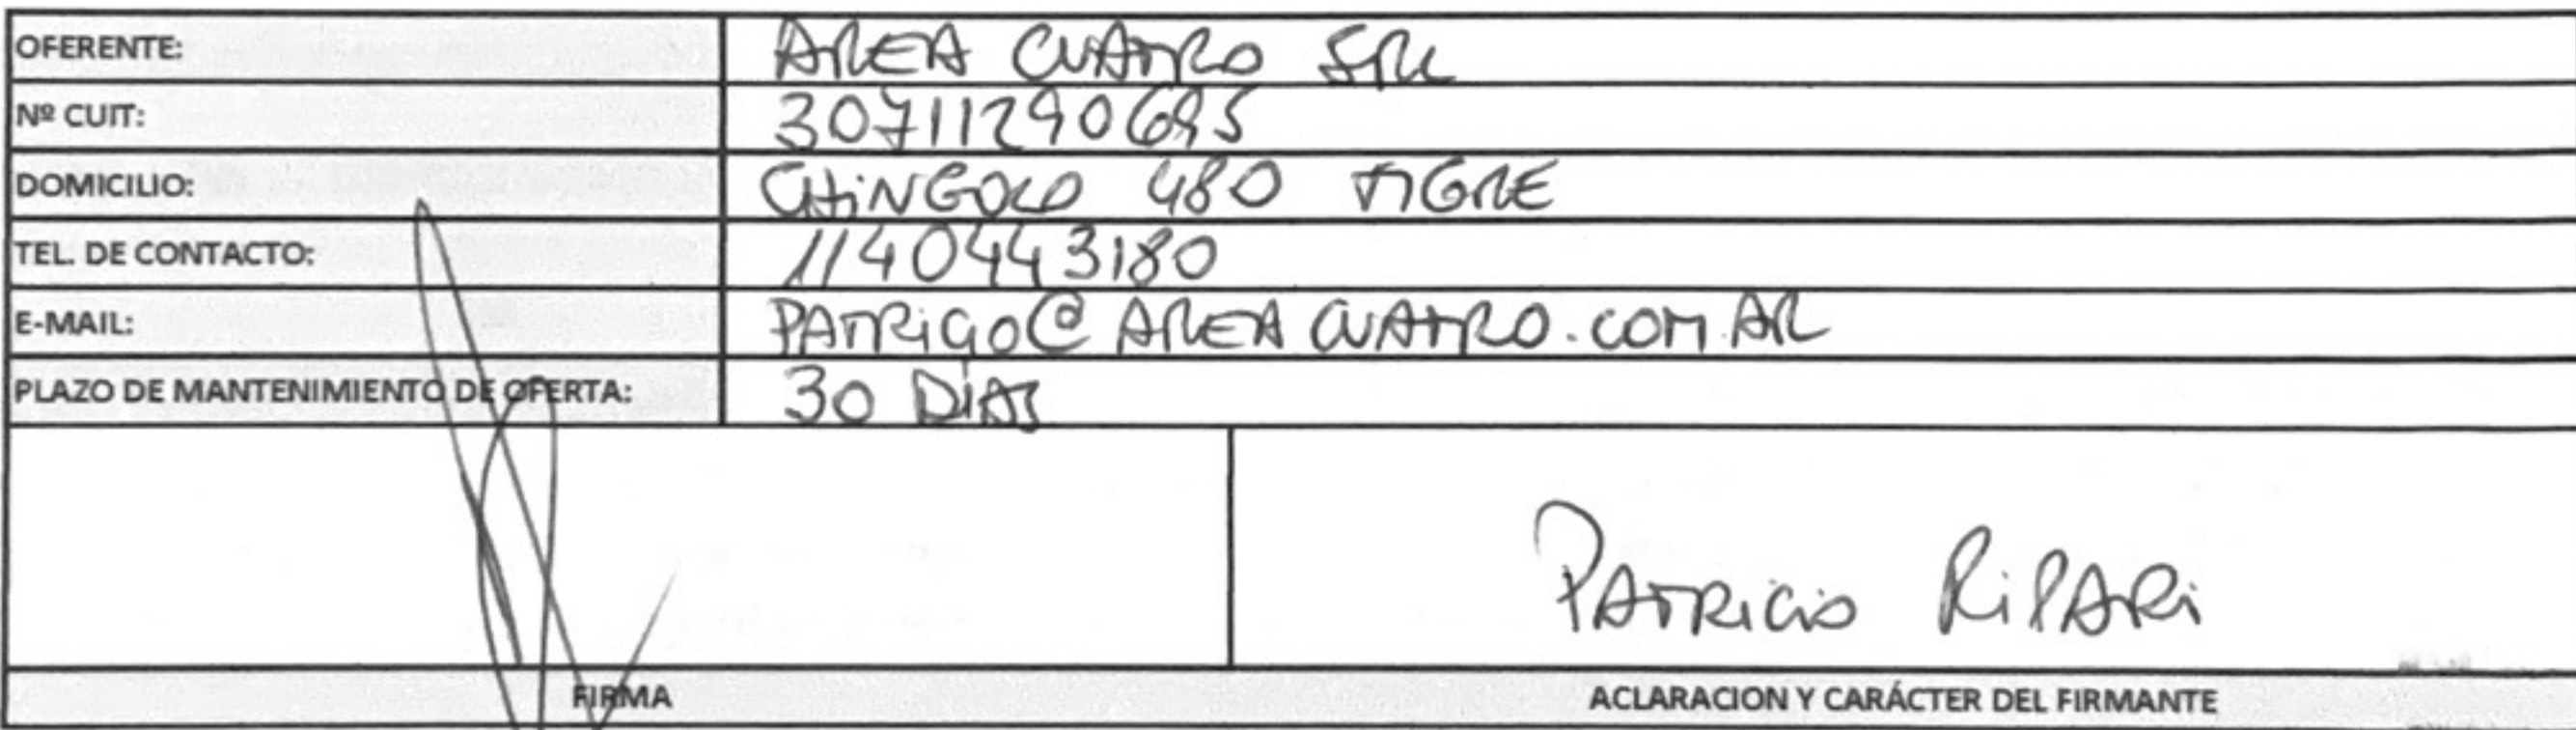 OFERENTE: AREA CUATRO SRL
Nº CUIT: 30711290695
DOMICILIO: CHINGOLO 480 TIGRE
TEL. DE CONTACTO: 1140443180
E-MAIL: PATRICIO@AREACUATRO.COM.AR
PLAZO DE MANTENIMIENTO DE OFERTA: 30 DÍAS
PATRICIO RIPARI
FIRMA ACLARACION Y CARÁCTER DEL FIRMANTE